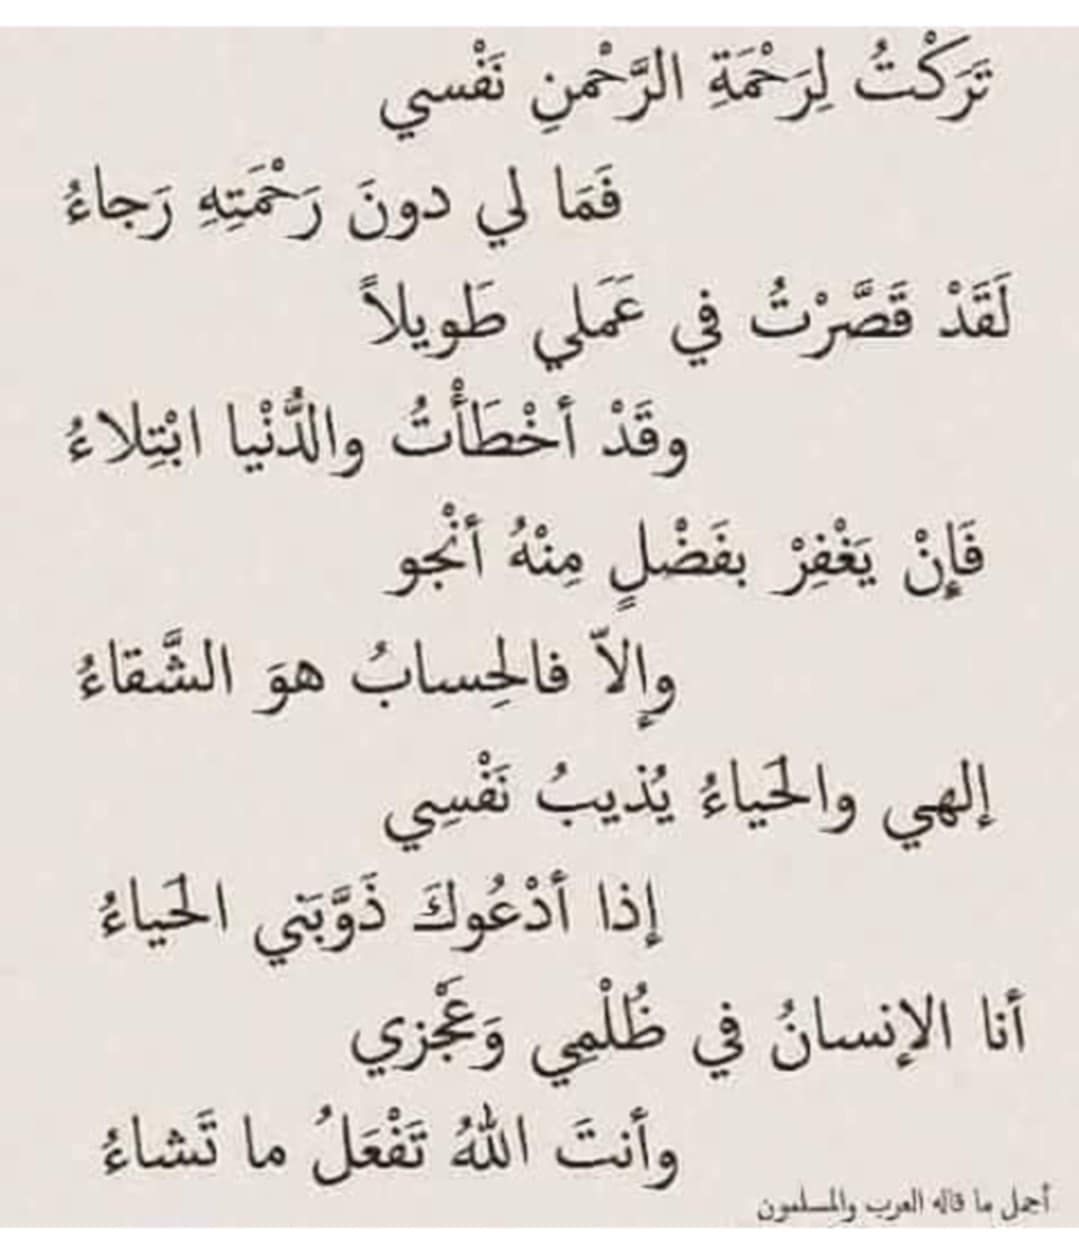 تَرَكْتُ لِرَحْمَةِ الرَّحْمنِ نَفْسي
فَمَا لي دونَ رَحْمَتِهِ رَجاءُ
لَقَدْ قَصَّرْتُ في عَمَلي طَويلاً
وقَدْ أخْطَأْتُ والدُّنْيا ابْتِلاءُ
فَإِنْ يَغْفِرْ بفَضْلٍ مِنْهُ أنْجو
وإِلاّ فالحِسابُ هوَ الشَّقاءُ
إلهي والحَياءُ يُذيبُ نَفْسِي
إذا أدْعُوكَ ذَوَّبَني الحَياءُ
أنا الإنسانُ في ظُلْمِي وَعَجْزي
وأنتَ اللهُ تَفْعَلُ ما تَشاءُ
أجمل ما قاله العرب والمسلمون